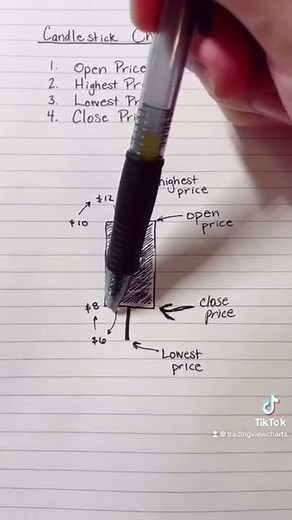 Candlestick Ch
1. Open Price
2. Highest Pr
3. Lowest Pr
4. Close Pri
highest
price
$12
$10
open
price
$8
close
price
$6
Lowest
price
TikTok
@ tradingviewcharts